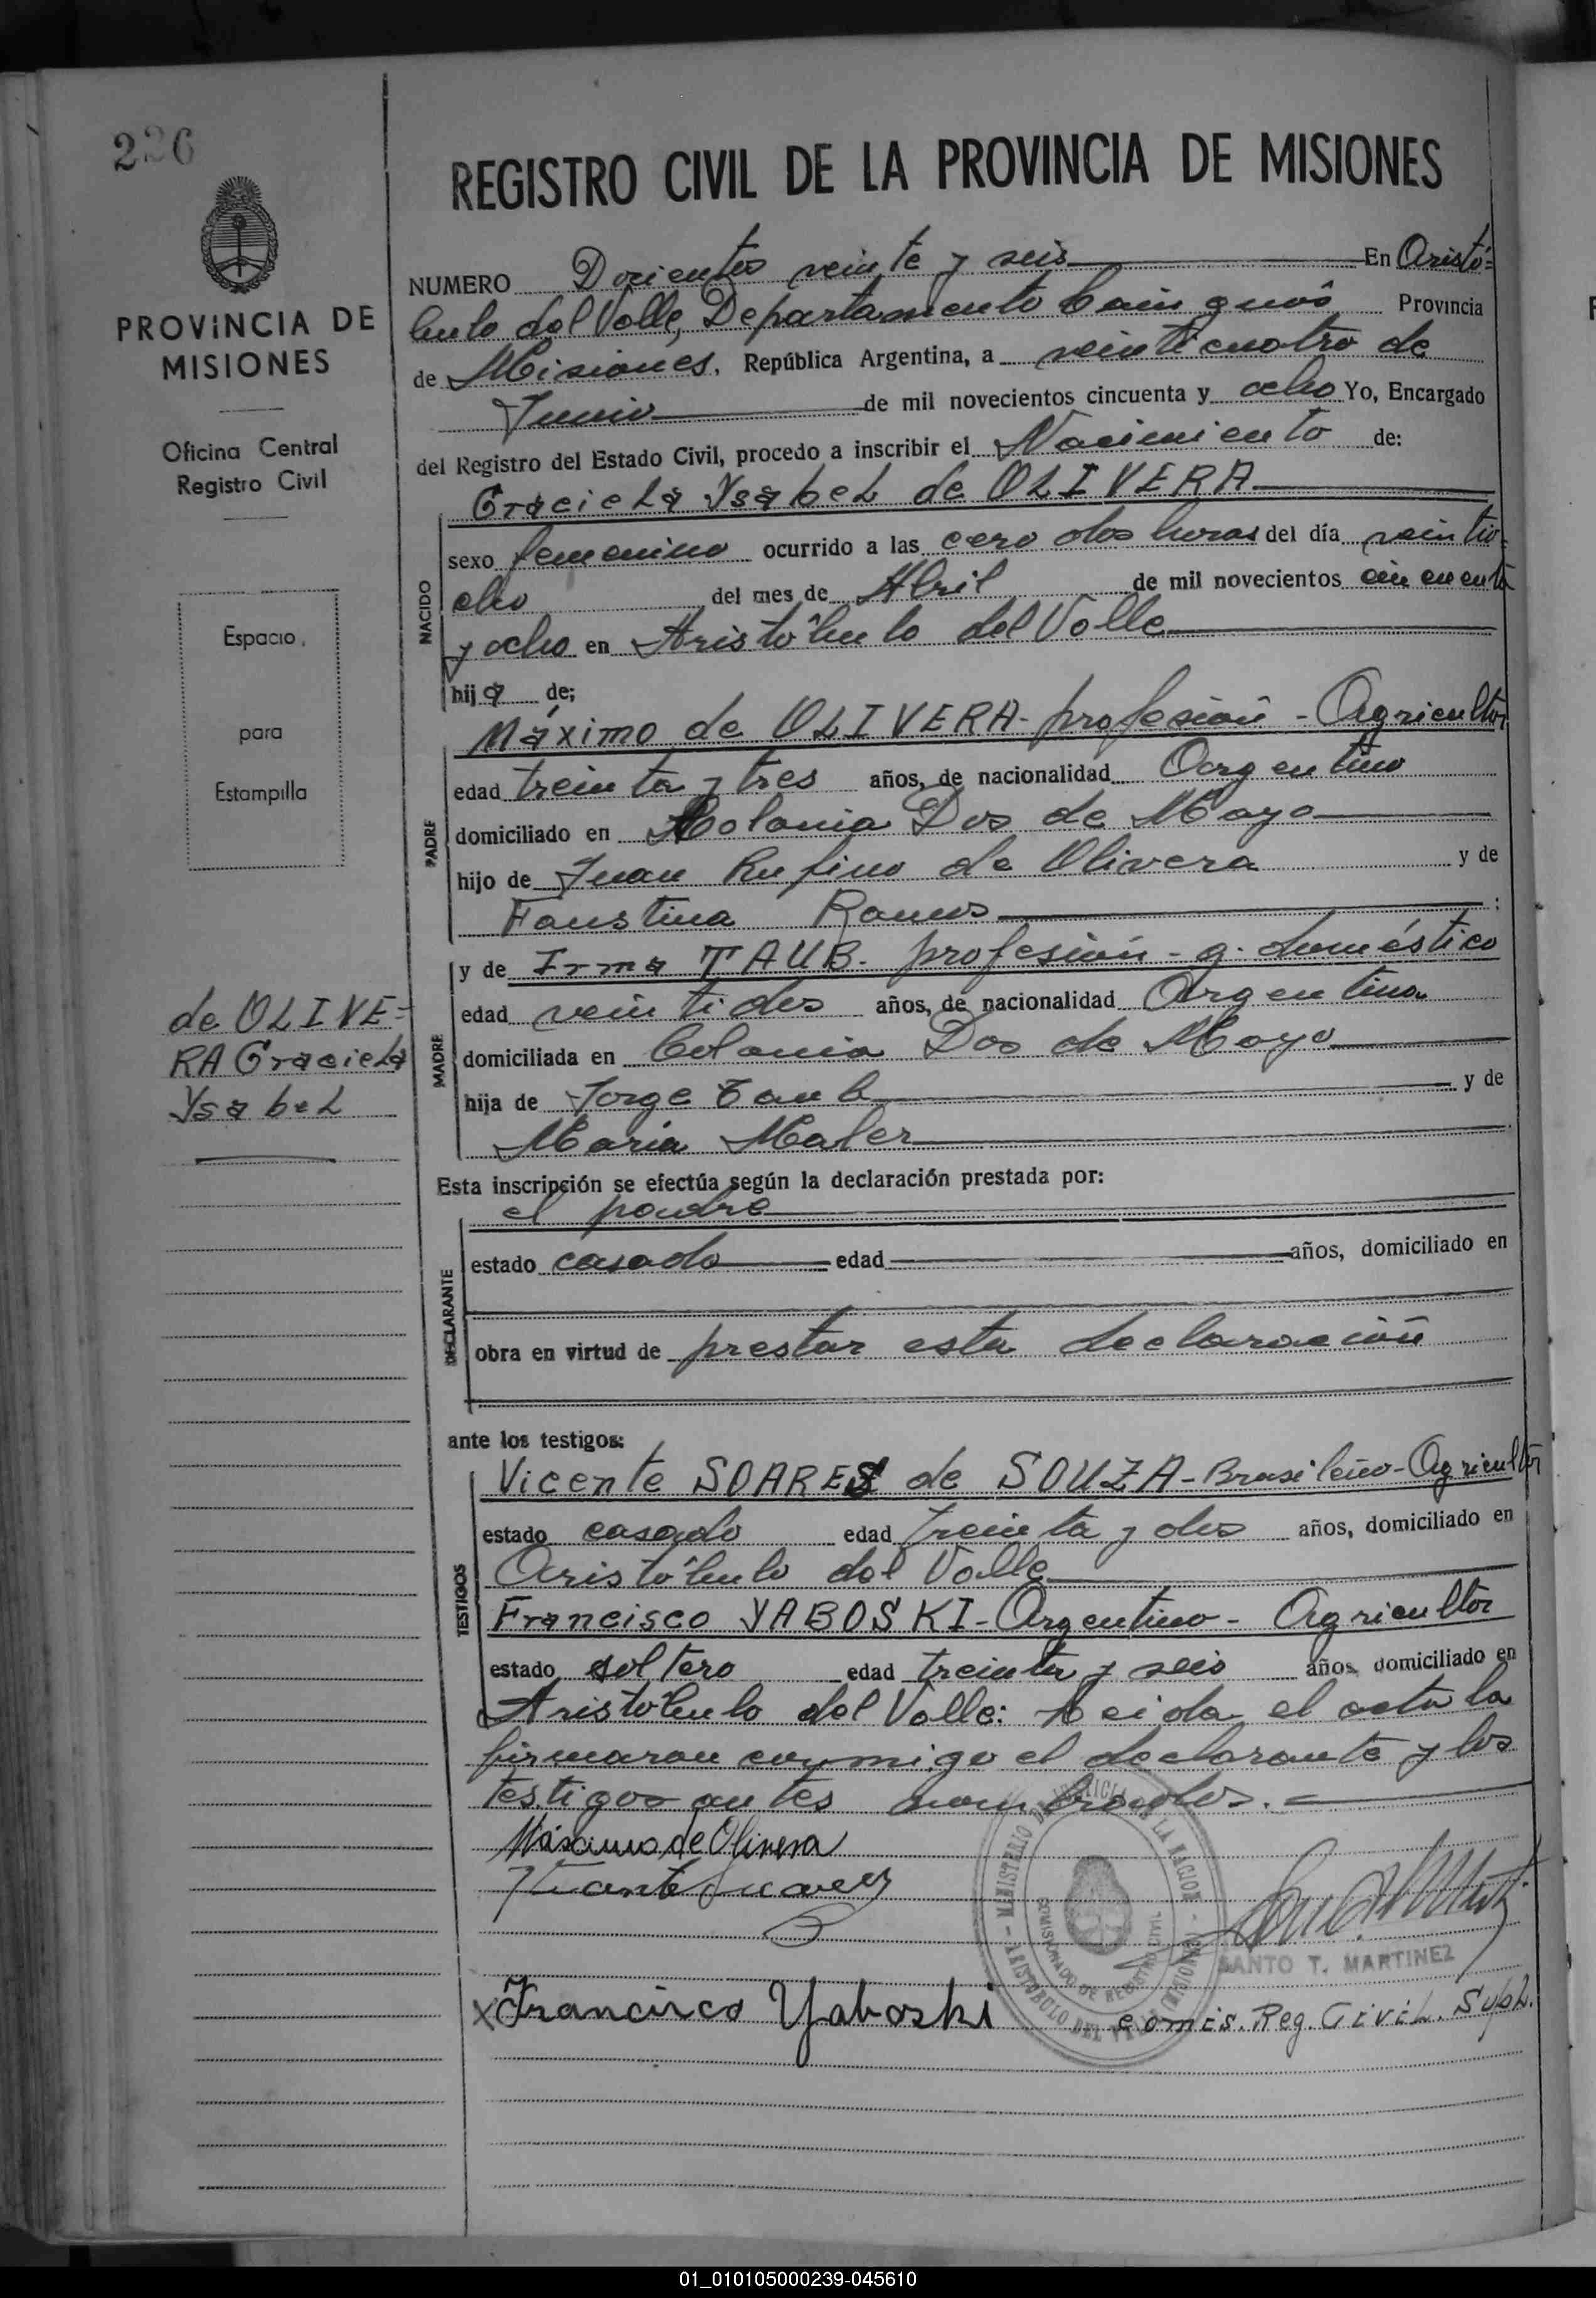 226
REGISTRO CIVIL DE LA PROVINCIA DE MISIONES
NUMERO Docientos veinte y seis En Aristó=
bulo del Valle, Departamento Cainguás Provincia
de Misiones, República Argentina, a veinticuatro de
Junio de mil novecientos cincuenta y ocho Yo, Encargado
del Registro del Estado Civil, procedo a inscribir el Nacimiento de:
Graciela Ysabel de OLIVERA
NACIDO
sexo femenino ocurrido a las cero dos horas del día veintio=
cho del mes de Abril de mil novecientos cincuenta
y ocho en Aristóbulo del Valle
hija de;
PADRE
Máximo de OLIVERA - profesión - Agricultor
edad treinta y tres años, de nacionalidad Argentino
domiciliado en Colonia Dos de Mayo
hijo de Juan Rufino de Olivera y de
Faustina Ramos :
MADRE
y de Irma TAUB - profesión - q. doméstico
edad veintidos años, de nacionalidad Argentina
domiciliada en Colonia Dos de Mayo
hija de Jorge Taub y de
Maria Maler
Esta inscripción se efectúa según la declaración prestada por:
DECLARANTE
el padre
estado casado edad años, domiciliado en
obra en virtud de prestar esta declaración
ante los testigos:
TESTIGOS
Vicente SOARES de SOUZA - Brasileño - Agricultor
estado casado edad treinta y dos años, domiciliado en
Aristóbulo del Valle
Francisco YABOSKI - Argentino - Agricultor
estado soltero edad treinta y seis años, domiciliado en
Aristóbulo del Valle: Leida el acta la
firmaron conmigo el declarante y los
testigos antes nombrados.
Máximo de Olivera
Vicente Suarez
SANTO T. MARTINEZ
x Francisco Yaboski
Comis. Reg. Civil. Supl.
MINISTERIO DE JUSTICIA DE LA NACION - ARISTOBULO DEL VALLE (MISIONES)
COMISIONADO DE REGISTRO CIVIL
PROVINCIA DE
MISIONES
Oficina Central
Registro Civil
Espacio
para
Estampilla
de OLIVE=
RA Graciela
Ysabel
01_010105000239-045610